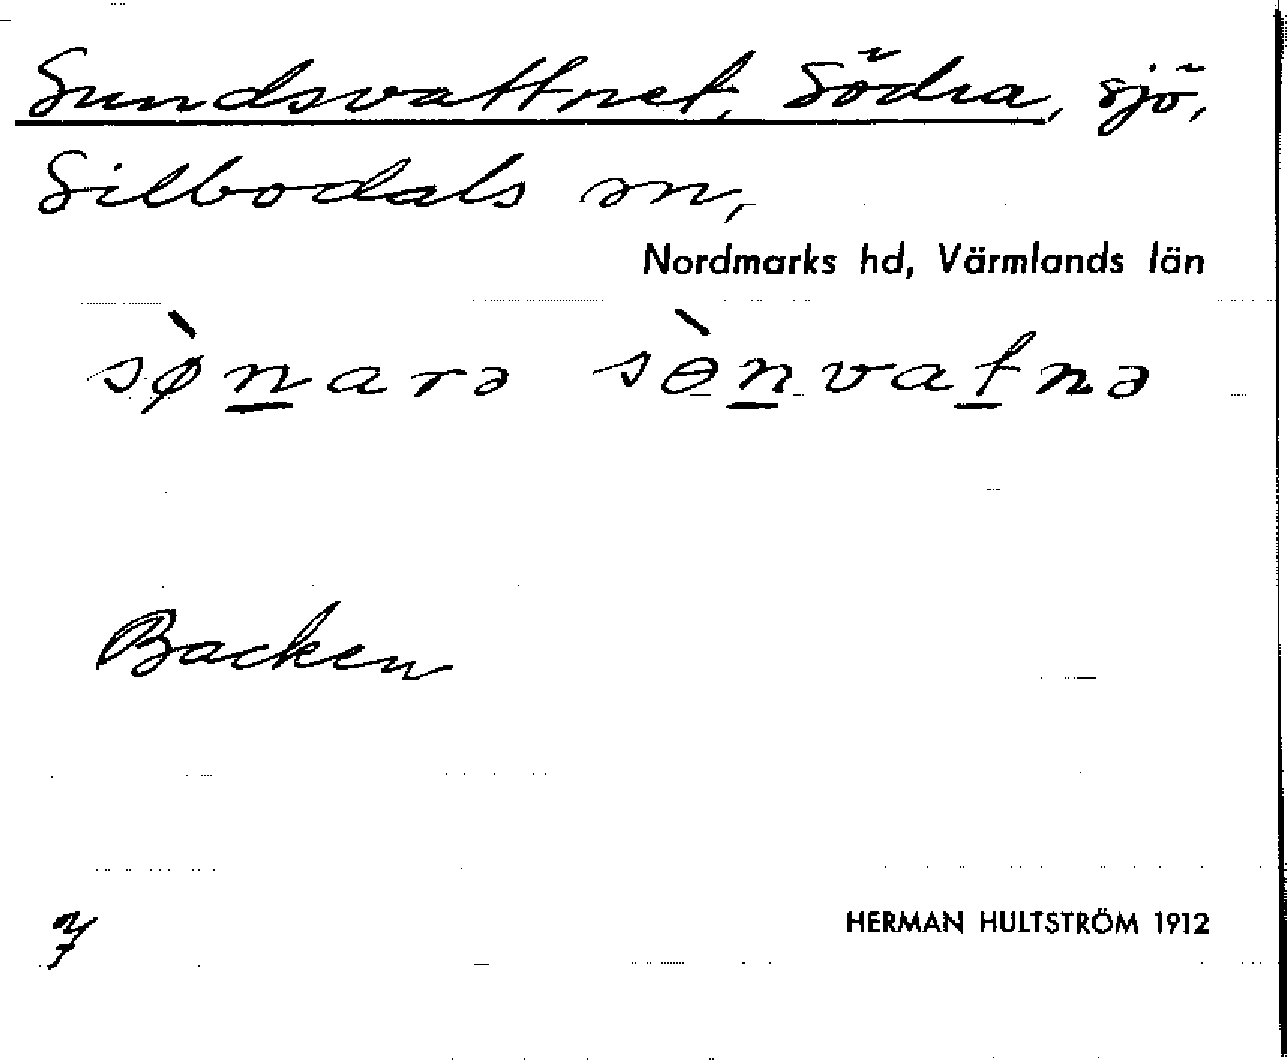 Sundsvattnet, Södra, sjö,
Silbodals sn,
Nordmarks hd, Värmlands län
sø̀n̲arə sɵ̀n̲vat̲nə
Backen
HERMAN HULTSTRÖM 1912